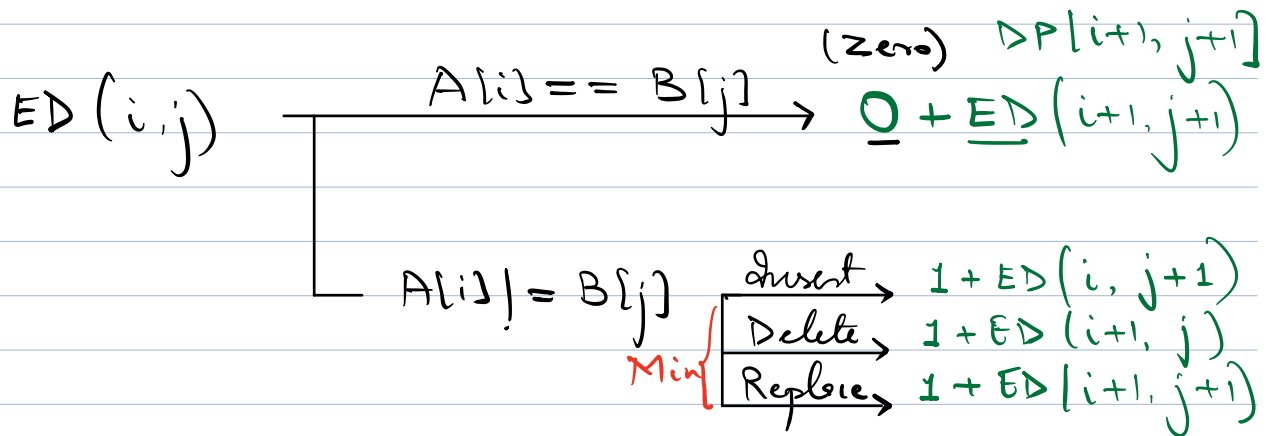 (Zero) DP[i+1, j+1]
ED(i,j) A[i] == B[j] 0 + ED(i+1, j+1)
A[i] != B[j] Insert 1 + ED(i, j+1)
Delete 1 + ED(i+1, j)
Min Replace 1 + ED[i+1, j+1)